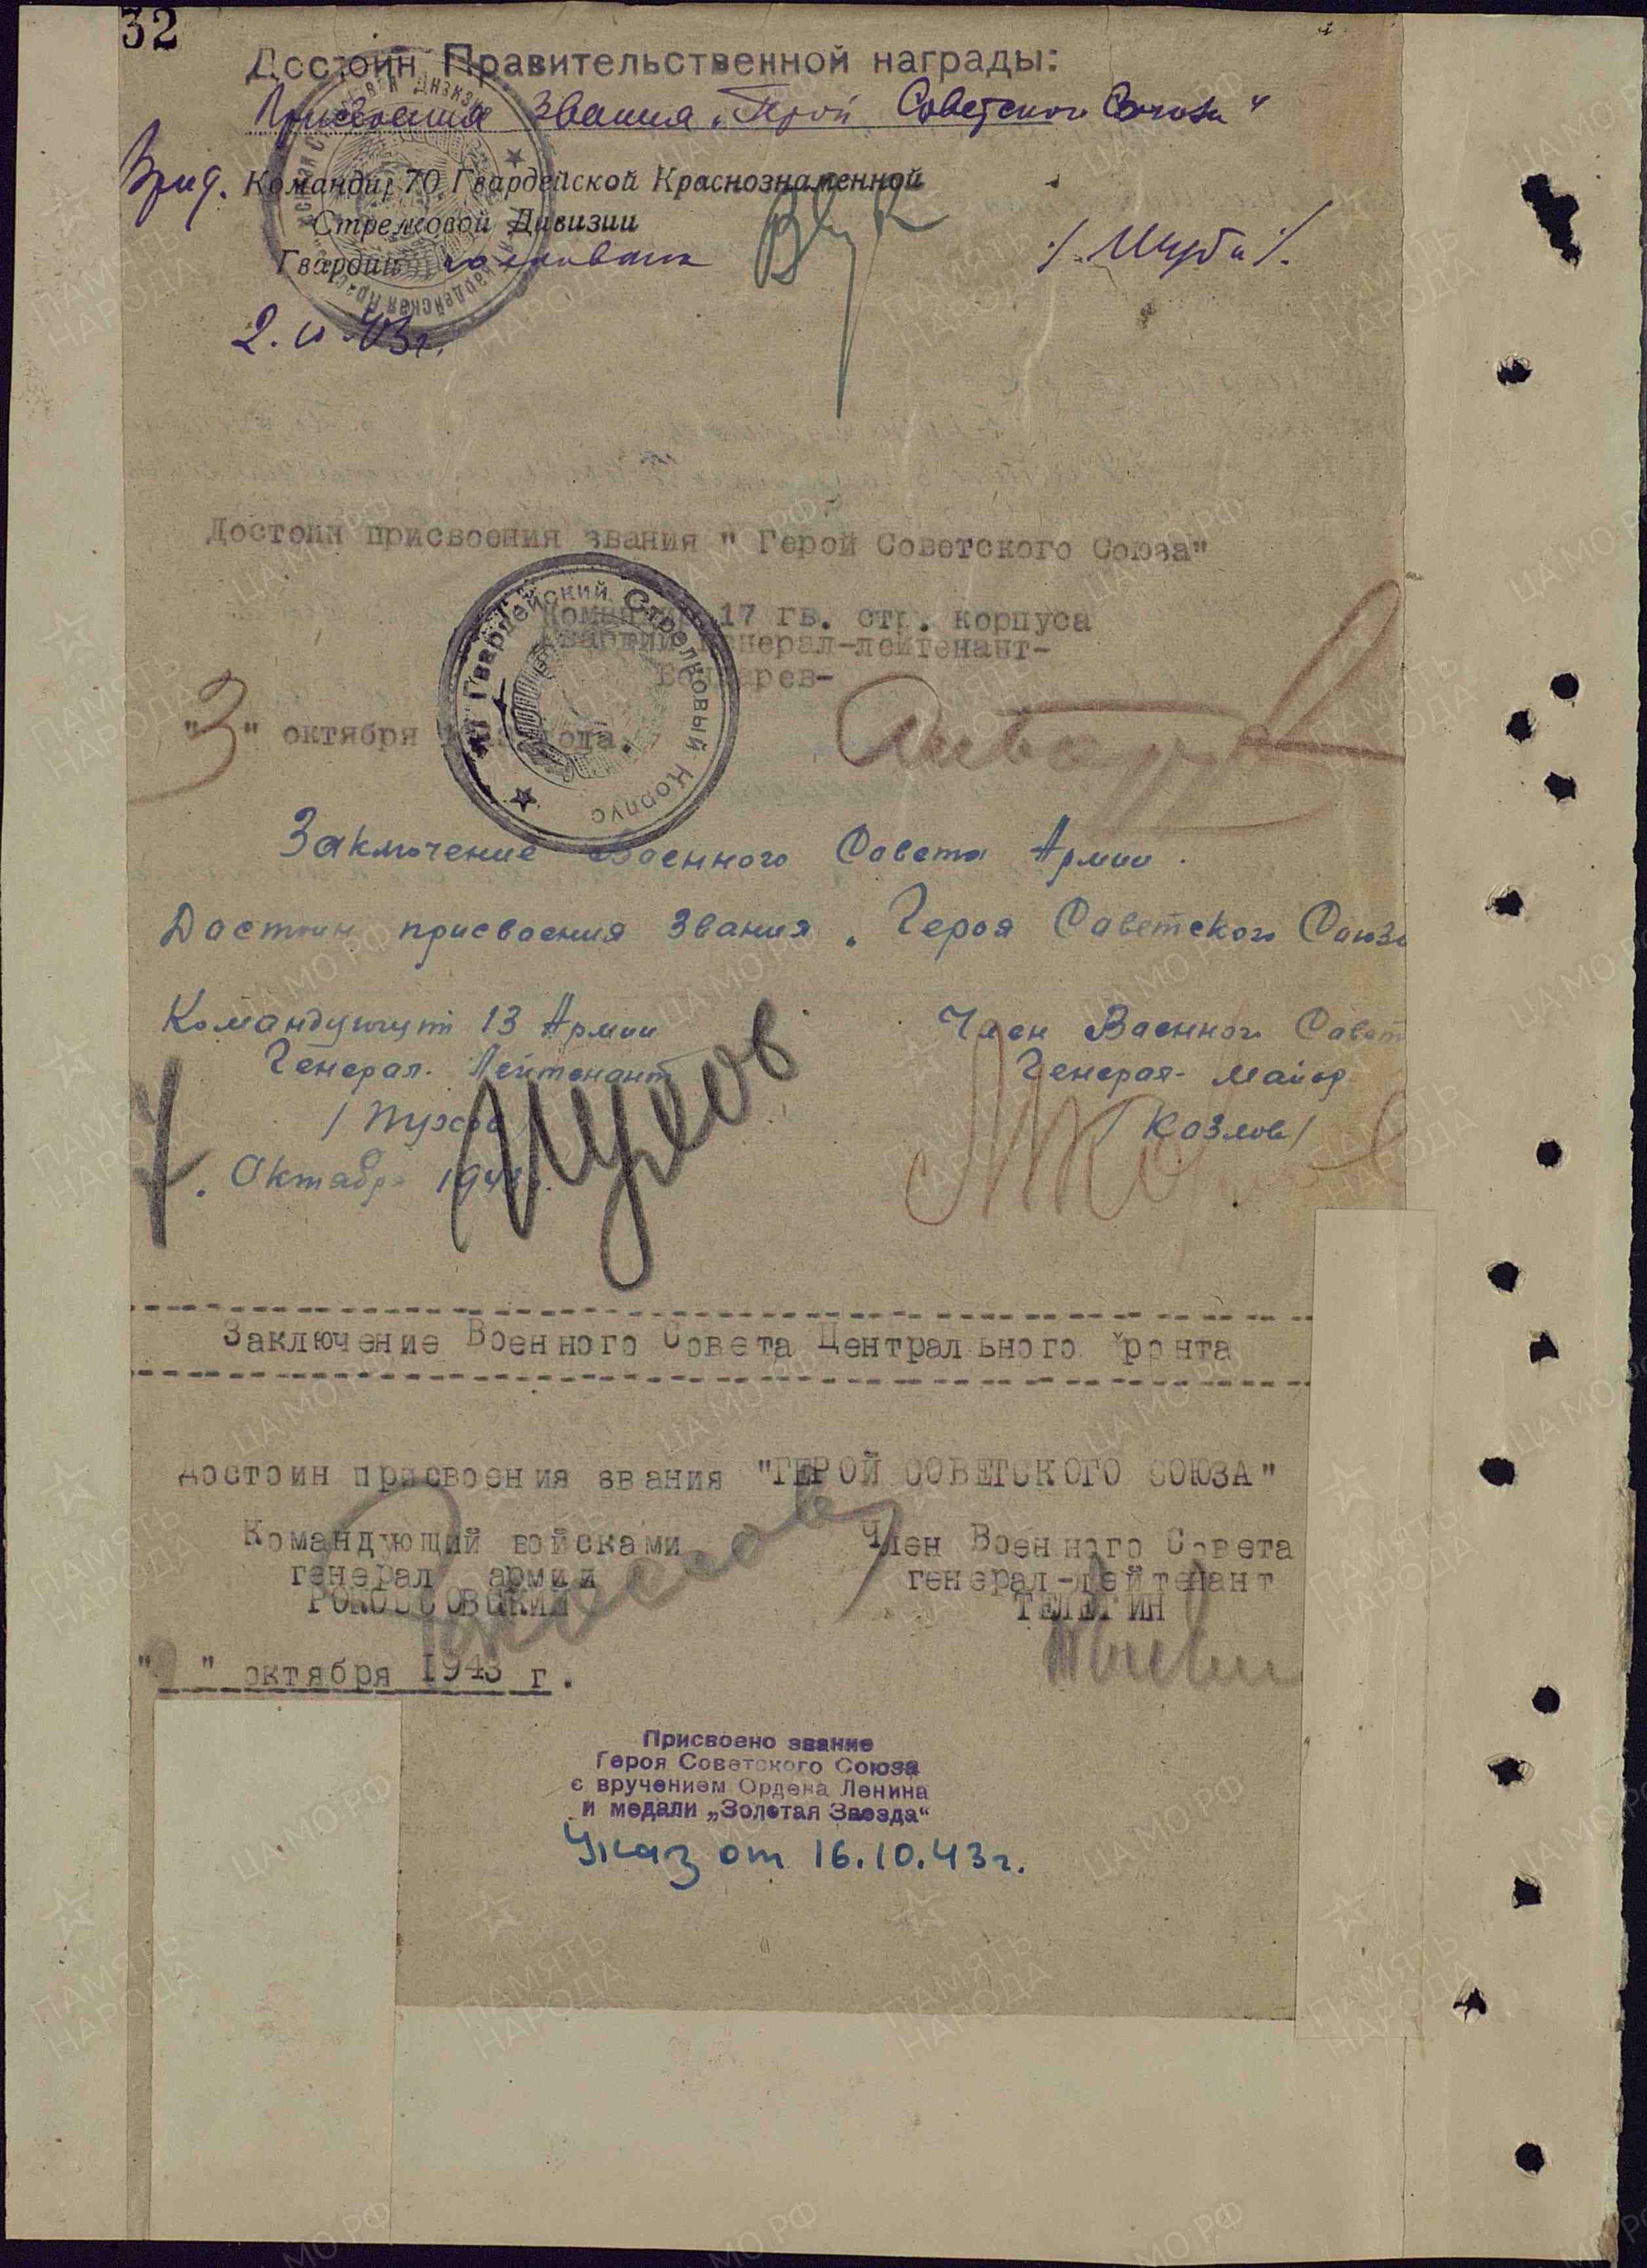 32
Достоин Правительственной награды:
Присвоения звания „Герой Советского Союза"
Врид. Командир 70 Гвардейской Краснознаменной
Стрелковой Дивизии
Гвардии полковник /Шуба/.
2. 10. 43г.
Достоин присвоения звания " Герой Советского Союза"
Командир 17 гв. стр. корпуса
Гвардии генерал-лейтенант-
Бондарев-
"3" октября 1943 года.
Гвардейский Стрелковый Корпус
Заключение Военного Совета Армии.
Достоин присвоения звания „Героя Советского Союза
Командующий 13 Армии
Генерал-Лейтенант
/Пухов/
Пухов
Октября 1943.
Член Военного Совет
Генерал-майор
/Козлов/
Заключение Военного Совета Центрального фронта
достоин присвоения звания "ГЕРОЙ СОВЕТСКОГО СОЮЗА"
Командующий войсками
генерал армии
РОКОССОВСКИЙ
Член Военного Совета
генерал-лейтенант
ТЕЛЕГИН
" " октября 1943 г.
Присвоено звание
Героя Советского Союза
с вручением Ордена Ленина
и медали „Золотая Звезда“
Указ от 16.10.43г.
ПАМЯТЬ НАРОДА
ЦА МО РФ